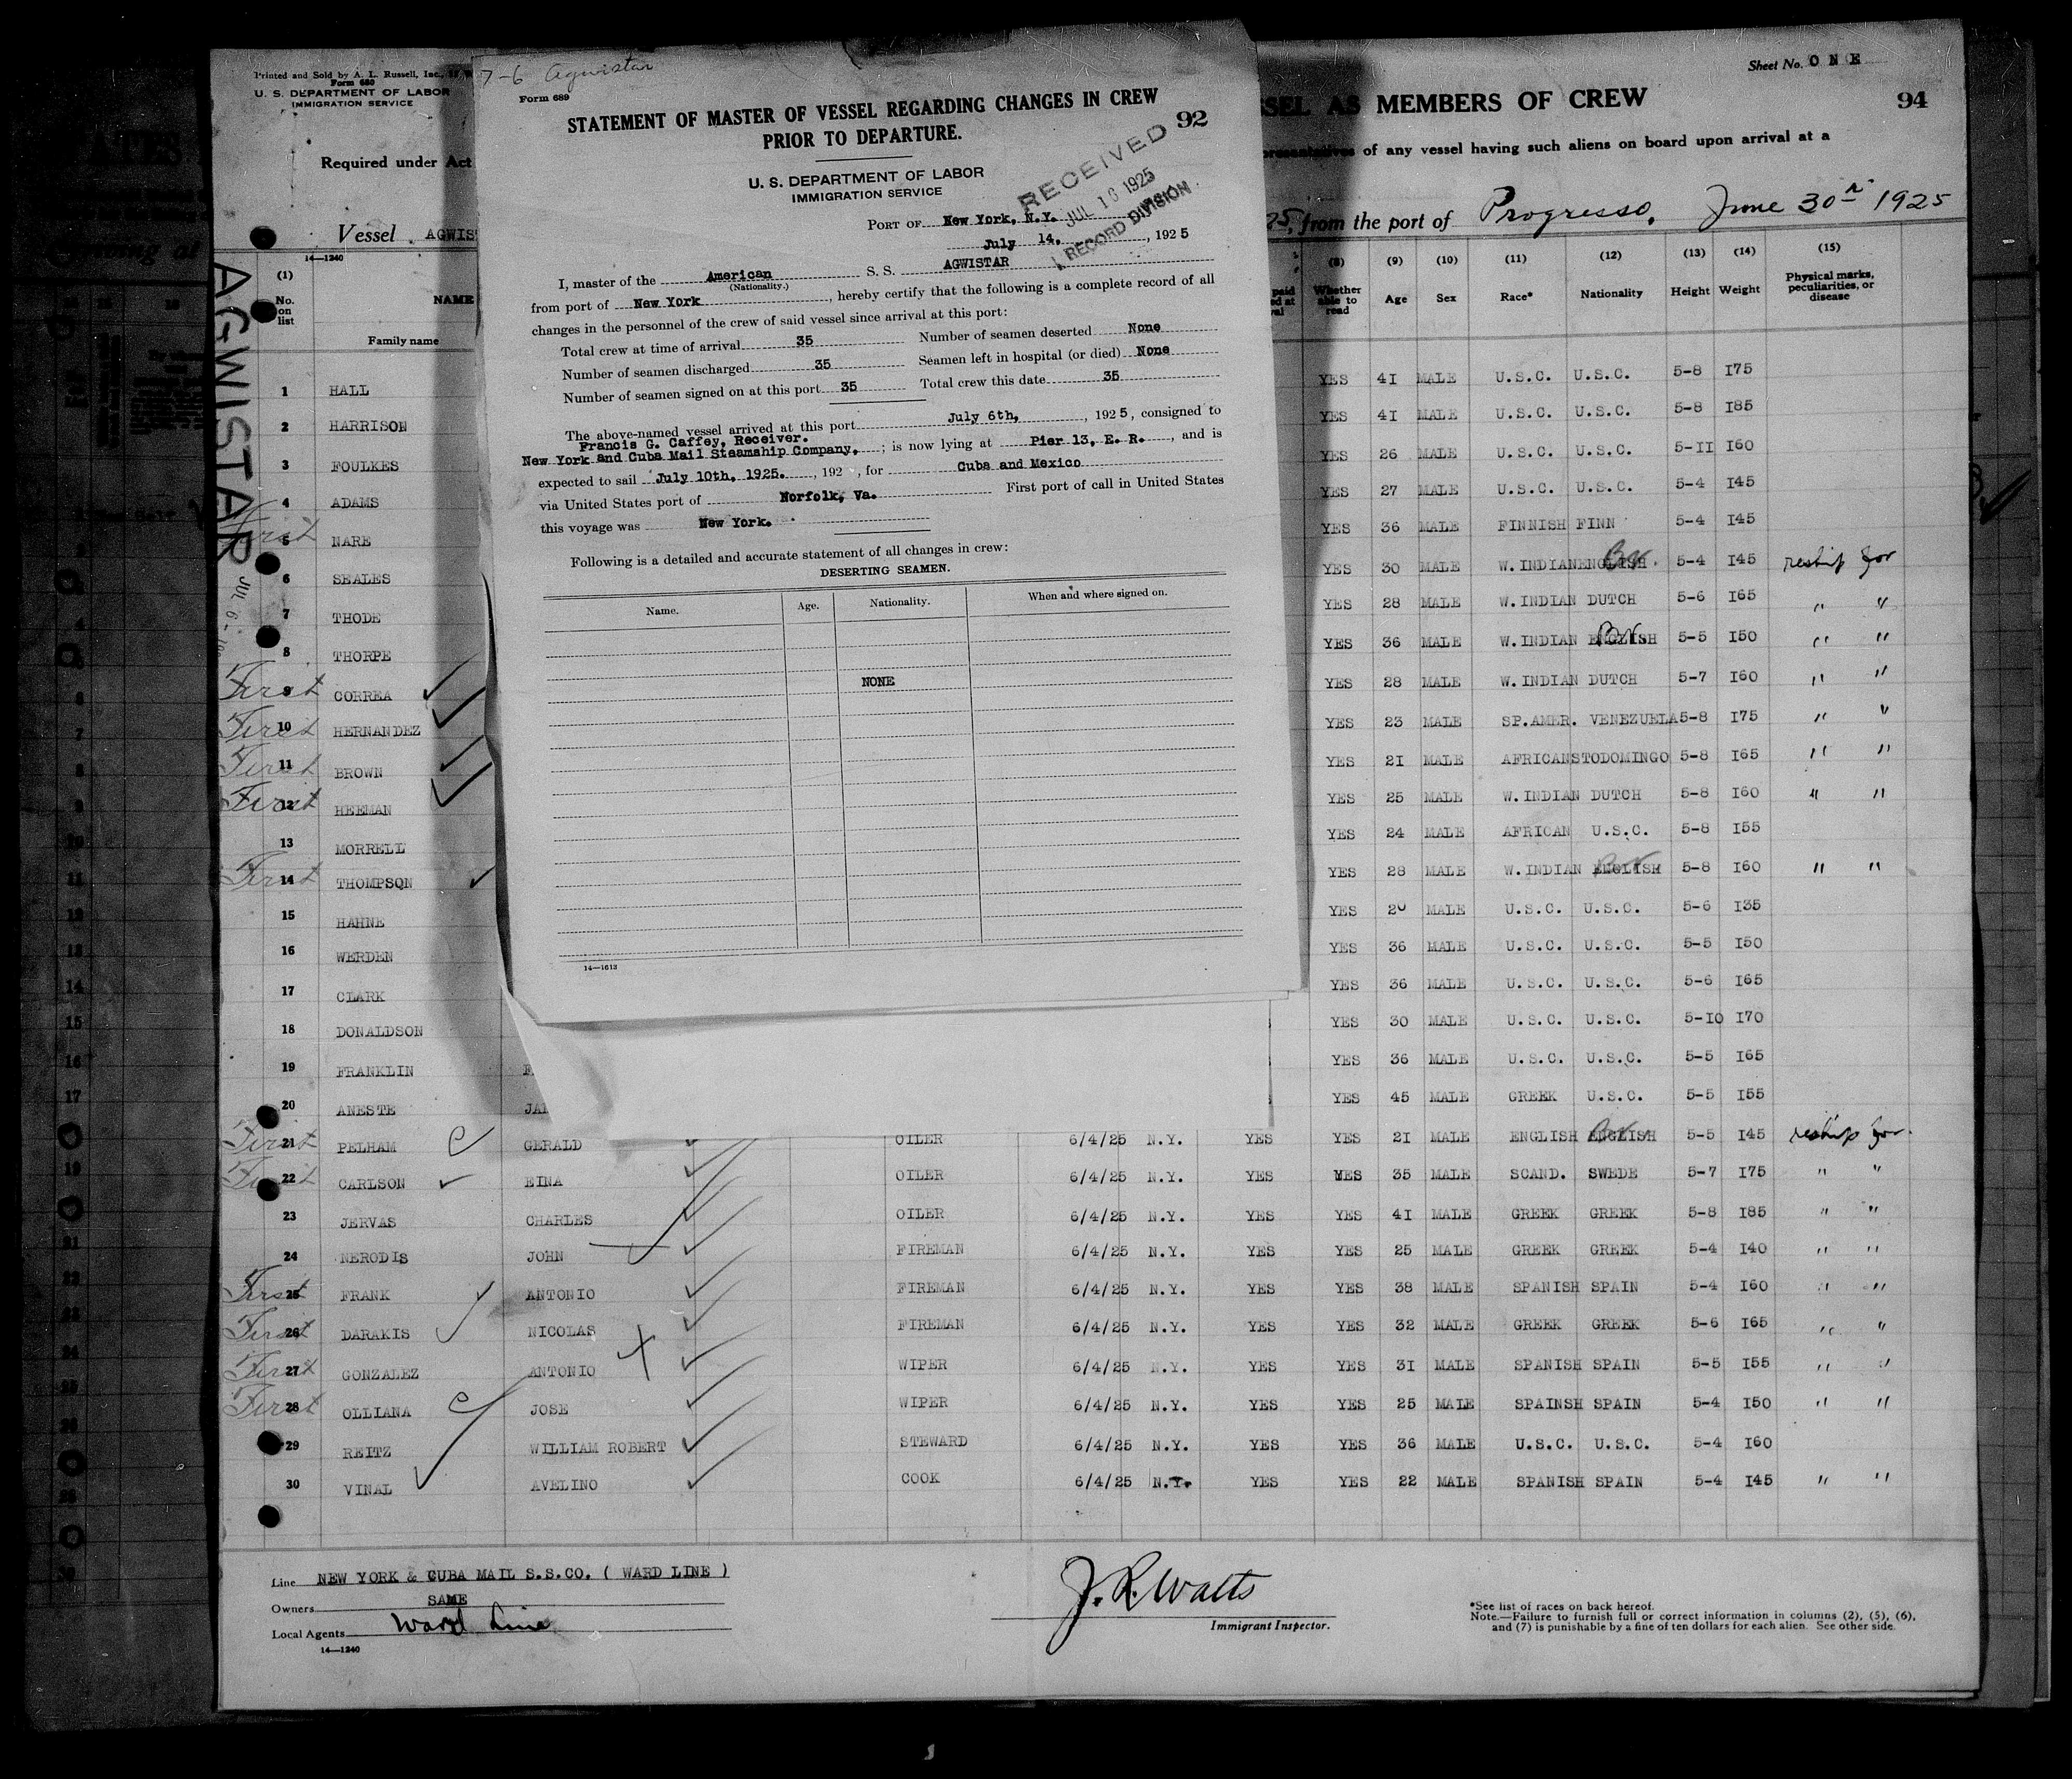 Printed and Sold by A. L. Russell, Inc.,
Form 680
U. S. DEPARTMENT OF LABOR
IMMIGRATION SERVICE
Required under Act
Vessel AGWIS
14—1240
(1)
No. on list
NAME
Family name
AGWISTAR
JUL 6 -
7-6 Agwistar
Form 689
STATEMENT OF MASTER OF VESSEL REGARDING CHANGES IN CREW
PRIOR TO DEPARTURE.
92
U. S. DEPARTMENT OF LABOR
IMMIGRATION SERVICE
RECEIVED
JUL 16 1925
RECORD DIVISION
PORT OF New York, N.Y.
July 14, , 1925
I, master of the American S. S. AGWISTAR
(Nationality.)
from port of New York , hereby certify that the following is a complete record of all
changes in the personnel of the crew of said vessel since arrival at this port:
Total crew at time of arrival 35 Number of seamen deserted None
Number of seamen discharged 35 Seamen left in hospital (or died) None
Number of seamen signed on at this port 35 Total crew this date 35
The above-named vessel arrived at this port July 6th, , 1925, consigned to
Francis G. Caffey, Receiver.
New York and Cuba Mail Steamship Company, ; is now lying at Pier 13, E. R. , and is
expected to sail July 10th, 1925. , 192 , for Cuba and Mexico
via United States port of Norfolk, Va. First port of call in United States
this voyage was New York.
Following is a detailed and accurate statement of all changes in crew:
DESERTING SEAMEN.
Name. Age. Nationality. When and where signed on.
NONE
14—1612
Sheet No. ONE
SSEL AS MEMBERS OF CREW
94
of any vessel having such aliens on board upon arrival at a
25, from the port of Progresso, June 30th 1925
(8) (9) (10) (11) (12) (13) (14) (15)
Whether able to read Age Sex Race* Nationality Height Weight Physical marks, peculiarities, or disease
1 HALL YES 41 MALE U.S.C. U.S.C. 5-8 175
2 HARRISON YES 41 MALE U.S.C. U.S.C. 5-8 185
3 FOULKES YES 26 MALE U.S.C. U.S.C. 5-11 160
4 ADAMS YES 27 MALE U.S.C. U.S.C. 5-4 145
First 5 NARE YES 36 MALE FINNISH FINN 5-4 145
6 SEALES YES 30 MALE W.INDIAN ENGLISH Br. 5-4 145 reship for
7 THODE YES 28 MALE W.INDIAN DUTCH 5-6 165 " "
8 THORPE YES 36 MALE W.INDIAN ENGLISH Br. 5-5 150 " "
First 9 CORREA YES 28 MALE W.INDIAN DUTCH 5-7 160 " "
First 10 HERNANDEZ YES 23 MALE SP.AMER. VENEZUELA 5-8 175 " "
First 11 BROWN YES 21 MALE AFRICAN STODOMINGO 5-8 165 " "
First 12 HEEMAN YES 25 MALE W.INDIAN DUTCH 5-8 160 " "
13 MORRELL YES 24 MALE AFRICAN U.S.C. 5-8 155
First 14 THOMPSON YES 28 MALE W.INDIAN ENGLISH Br 5-8 160 " "
15 HAHNE YES 20 MALE U.S.C. U.S.C. 5-6 135
16 WERDEN YES 36 MALE U.S.C. U.S.C. 5-5 150
17 CLARK YES 36 MALE U.S.C. U.S.C. 5-6 165
18 DONALDSON YES 30 MALE U.S.C. U.S.C. 5-10 170
19 FRANKLIN YES 36 MALE U.S.C. U.S.C. 5-5 165
20 ANESTE YES 45 MALE GREEK U.S.C. 5-5 155
First 21 PELHAM GERALD OILER 6/4/25 N.Y. YES YES 21 MALE ENGLISH ENGLISH Br 5-5 145 reship for
First 22 CARLSON EINA OILER 6/4/25 N.Y. YES YES 35 MALE SCAND. SWEDE 5-7 175 " "
23 JERVAS CHARLES OILER 6/4/25 N.Y. YES YES 41 MALE GREEK GREEK 5-8 185 " "
24 NERODIS JOHN FIREMAN 6/4/25 N.Y. YES YES 25 MALE GREEK GREEK 5-4 140 " "
First 25 FRANK ANTONIO FIREMAN 6/4/25 N.Y. YES YES 38 MALE SPANISH SPAIN 5-4 160 " "
First 26 DARAKIS NICOLAS FIREMAN 6/4/25 N.Y. YES YES 32 MALE GREEK GREEK 5-6 165 " "
First 27 GONZALEZ ANTONIO WIPER 6/4/25 N.Y. YES YES 31 MALE SPANISH SPAIN 5-5 155 " "
First 28 OLLIANA JOSE WIPER 6/4/25 N.Y. YES YES 25 MALE SPAINSH SPAIN 5-4 150 " "
29 REITZ WILLIAM ROBERT STEWARD 6/4/25 N.Y. YES YES 36 MALE U.S.C. U.S.C. 5-4 160
30 VINAL AVELINO COOK 6/4/25 N.Y. YES YES 22 MALE SPANISH SPAIN 5-4 145 " "
Line NEW YORK & CUBA MAIL S.S.CO. ( WARD LINE )
Owners SAME
Local Agents Ward Line
14—1240
J. R. Watts
Immigrant Inspector.
*See list of races on back hereof.
Note.—Failure to furnish full or correct information in columns (2), (5), (6),
and (7) is punishable by a fine of ten dollars for each alien. See other side.